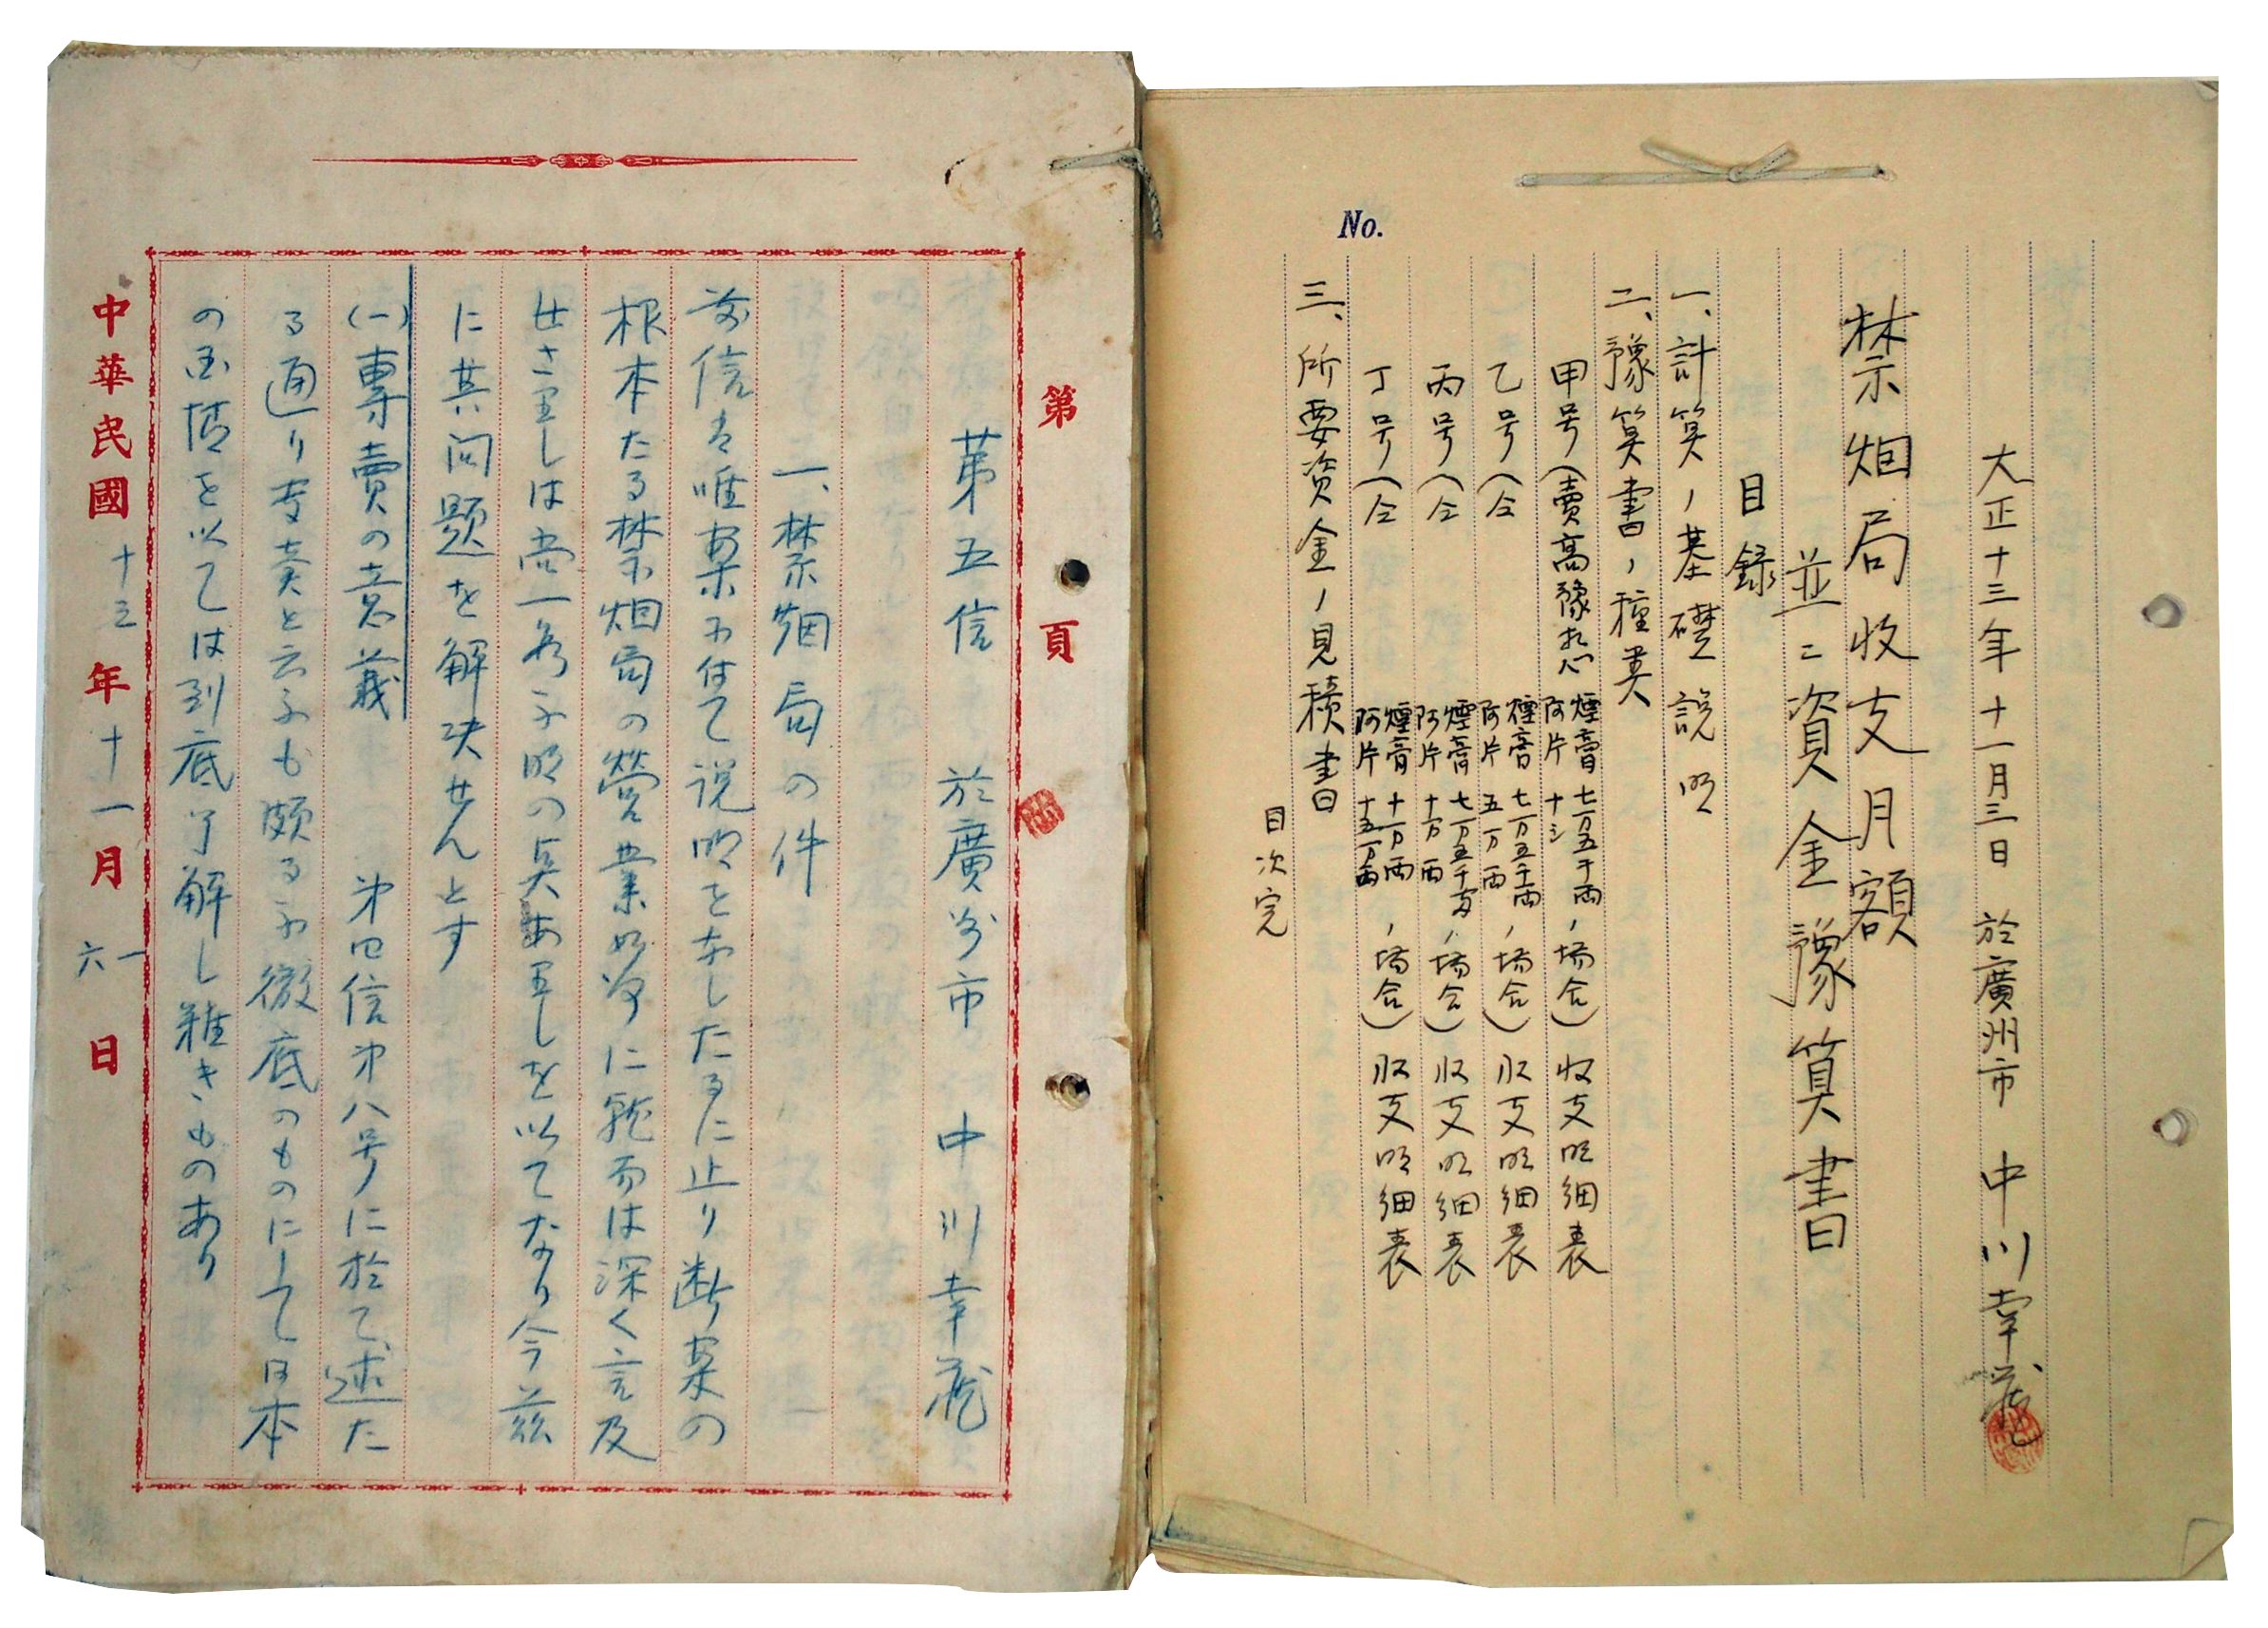 大正十三年十一月三日 於廣州市 中川幸蔵
禁烟局收支月額
並ニ資金豫算書
目録
一、計算ノ基礎説明
二、豫算書ノ種類
甲号(賣高豫想 煙膏 七万五千両 阿片 十 ノ場合)收支明細表
乙号(仝 煙膏 七万五千両 阿片 五万両 ノ場合)收支明細表
丙号(仝 煙膏 七万五千両 阿片 十万両 ノ場合)收支明細表
丁号(仝 煙膏 十万両 阿片 十五万両 ノ場合)收支明細表
三、所要資金ノ見積書
目次完
No.
第 頁
第五信 於廣州市 中川幸蔵
一、禁烟局の件
前信は唯案に付て説明をなしたるに止り断案の
根本たる禁烟局の營業如何に就ては深く言及
せさりしは尚一層不明の点ありしを以てなり今茲
に其問題を解决せんとす
(一)專賣の意義 第四信第八号に於て述た
る通り専賣と云ふも頗る不徹底のものにして日本
の国情を以ては到底了解し難きものあり
中華民國十三年十一月六日